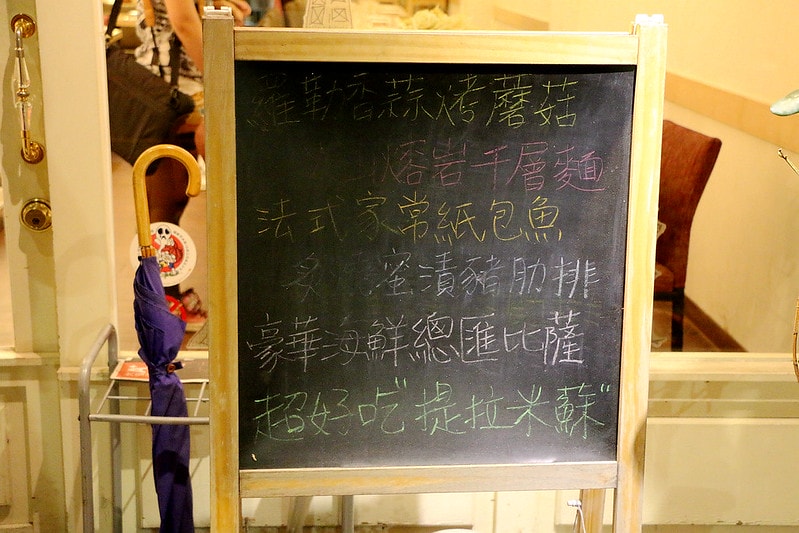 羅勒香蒜烤蘑菇
熔岩千層麵
法式家常紙包魚
炙 蜜漬豬肋排
豪華海鮮總匯比薩
超好吃"提拉米蘇"